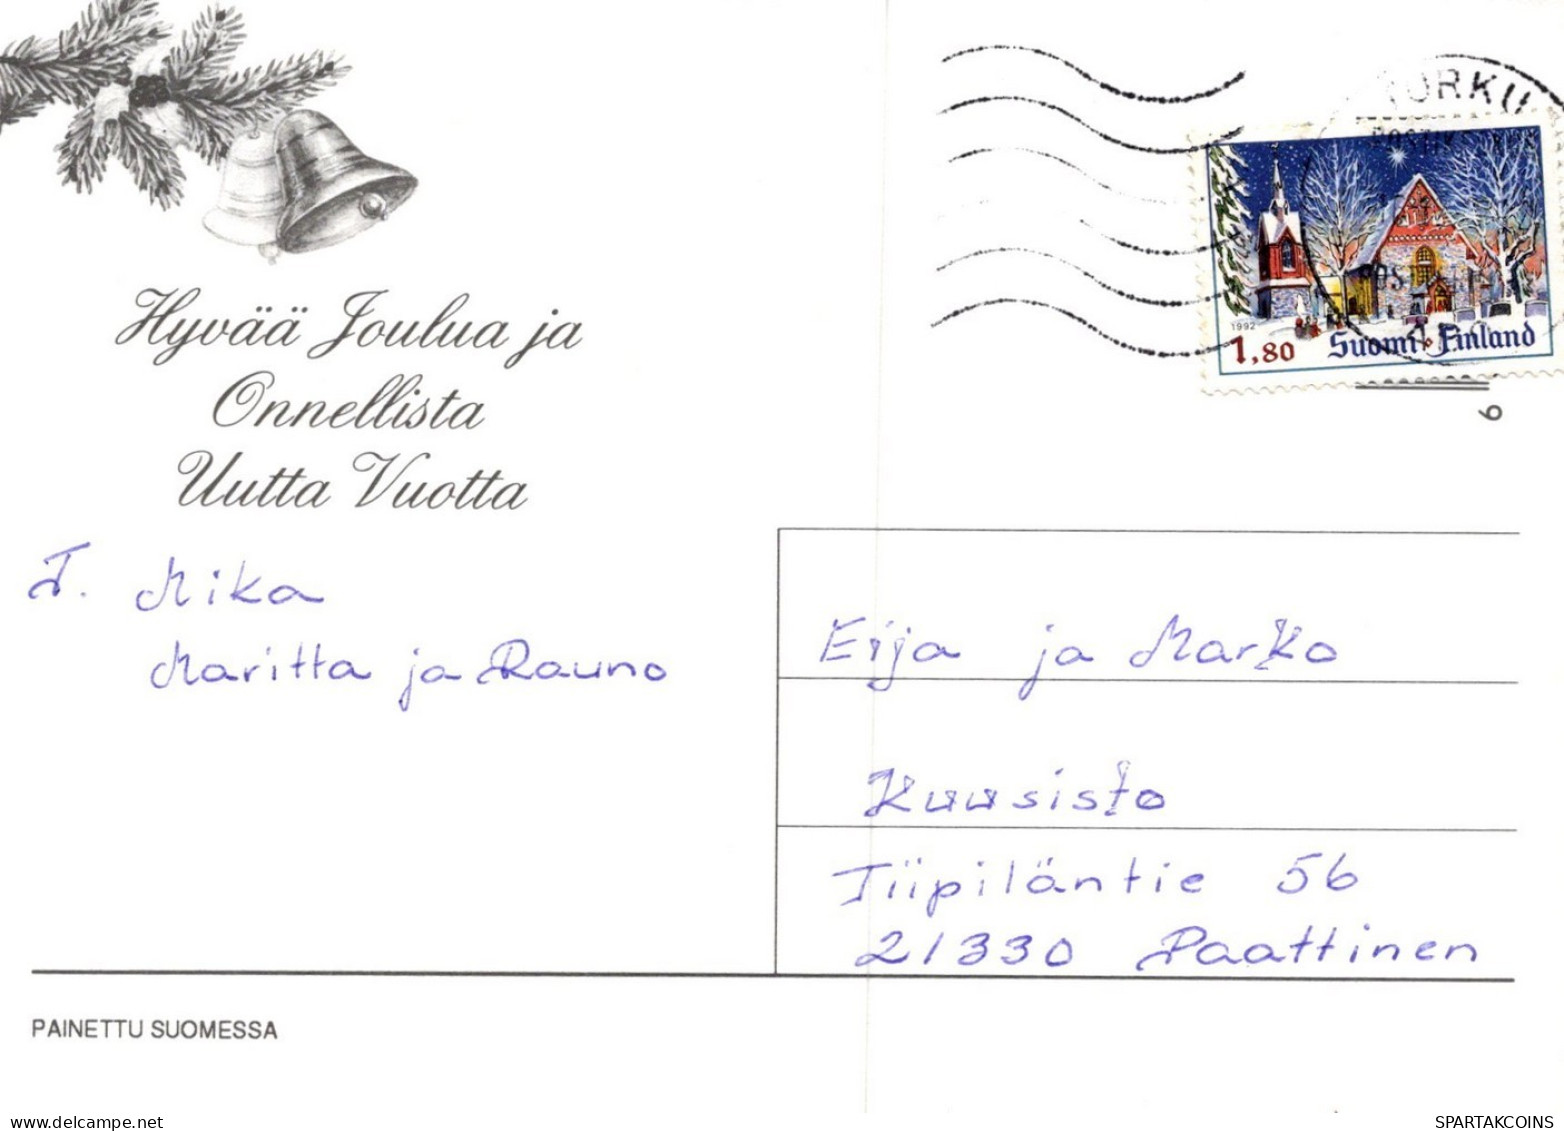 Hyvää Joulua ja
Onnellista
Uutta Vuotta
T. Mika
Maritta ja Rauno
TURKU
1992
1,80 Suomi Finland
6
Eija ja Marko
Kuusisto
Tiipiläntie 56
21330 Paattinen
PAINETTU SUOMESSA
akpool.co.uk
SPARTAKCOINS